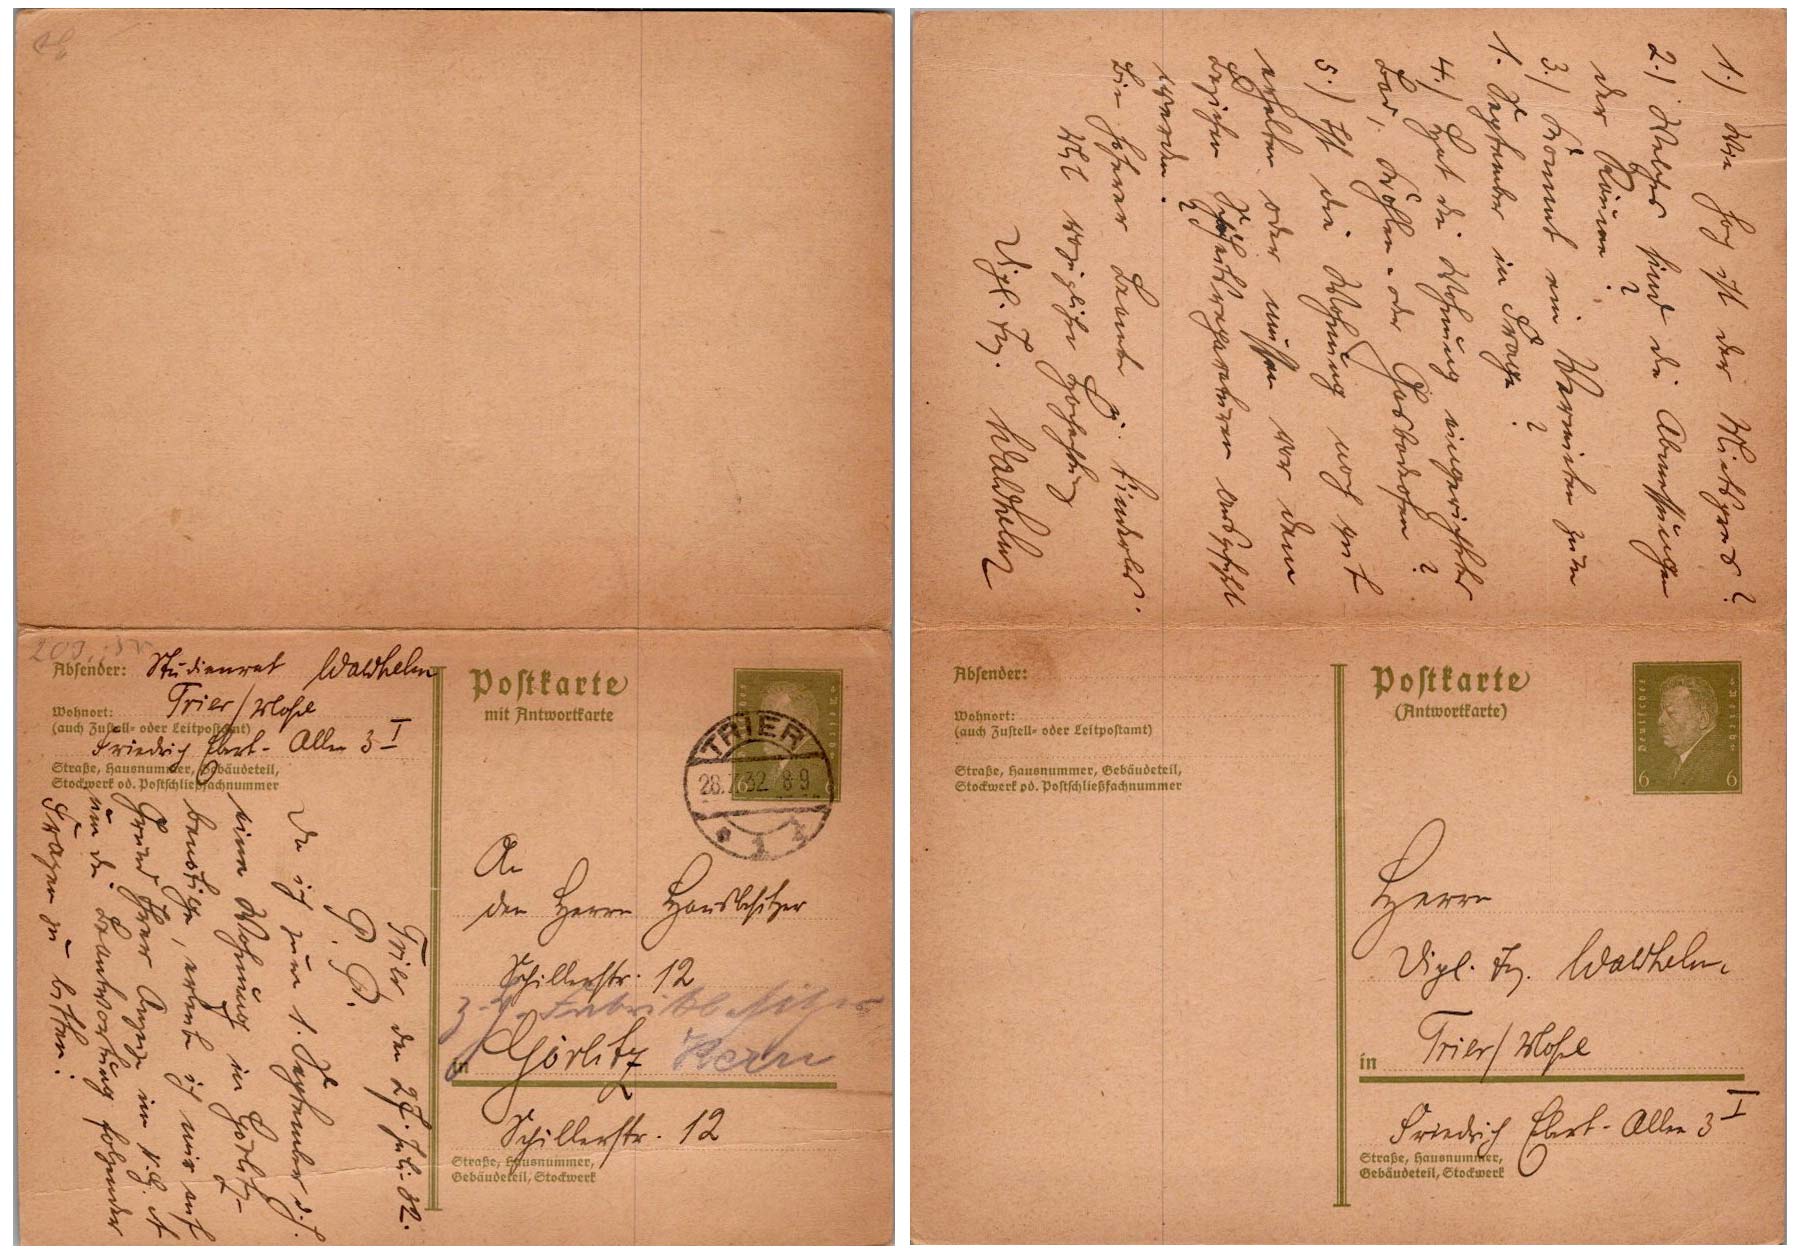 Absender: Studienrat Waldhelm
Wohnort: Trier/Mosel
(auch Zustell- oder Leitpostamt)
Friedrich Ebert-Allee 3 I
Straße, Hausnummer, Gebäudeteil,
Stockwerk od. Postschließfachnummer
Postkarte
mit Antwortkarte
Deutsches Reich
TRIER
28.7.32 8-9
An
den Herrn Hausbesitzer
Schillerstr. 12
z. H. Fabrikbesitzer
in Görlitz
Schillerstr. 12
Straße, Hausnummer,
Gebäudeteil, Stockwerk
Trier den 27. Juli 32.
P. P.
Da ich zum 1. September d. J.
eine Wohnung in Görlitz
benötige, erlaube ich mir auf
Grund Ihrer Anzeige im
um die Beantwortung folgender
Fragen zu bitten:
1.) Wie hoch ist der Mietspreis?
2.) Welches sind die Abmessungen
der Räume?
3.) Kommt ein Vermieten zum
1. September in Frage?
4.) Hat die Wohnung eingerichtetes
Bad, Kohlen- oder Gasbadeofen?
5.) Ist die Wohnung noch gut
erhalten oder müssen vor dem
Beziehen Schönheitsreparaturen ausgeführt
werden?
Die Herrn kinderlos.
Mit vorzüglicher Hochachtung
Dipl. Ing. Waldhelm
Absender:
Wohnort:
(auch Zustell- oder Leitpostamt)
Straße, Hausnummer, Gebäudeteil,
Stockwerk od. Postschließfachnummer
Postkarte
(Antwortkarte)
Deutsches Reich
6 6
Herrn
Dipl. Ing. Waldhelm
in Trier/Mosel
Friedrich Ebert-Allee 3 I
Straße, Hausnummer,
Gebäudeteil, Stockwerk